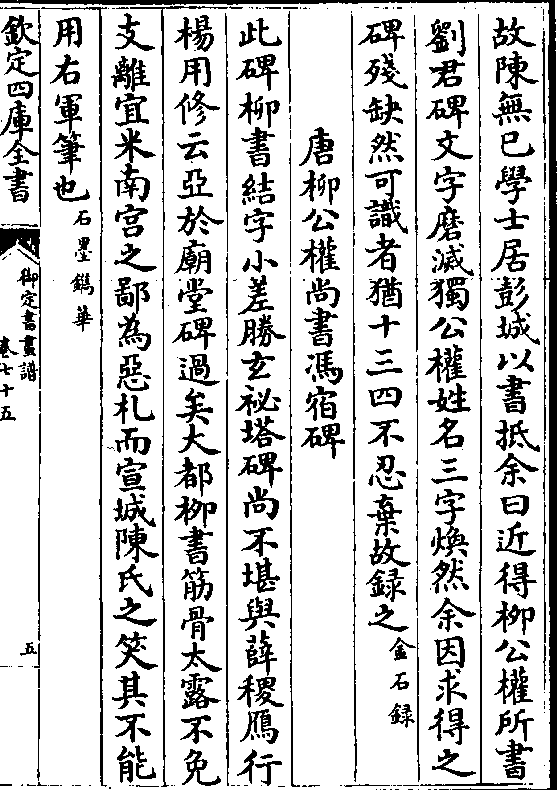 故陳無已學士居彭城以書抵余曰近得柳公權所書
劉君碑文字磨滅獨公權姓名三字煥然余因求得之
碑殘缺然可識者猶十三四不忍棄故録之金石録
唐柳公權尚書馮宿碑
此碑柳書結字小差勝玄祕塔碑尚不堪與薛稷鴈行
楊用修云亞於廟堂碑過矣大都柳書筋骨太露不免
支離宜米南宮之鄙為惡札而宣城陳氏之笑其不能
用右軍筆也石墨鐫華
欽定四庫全書
御定書畫譜
卷七十五
五